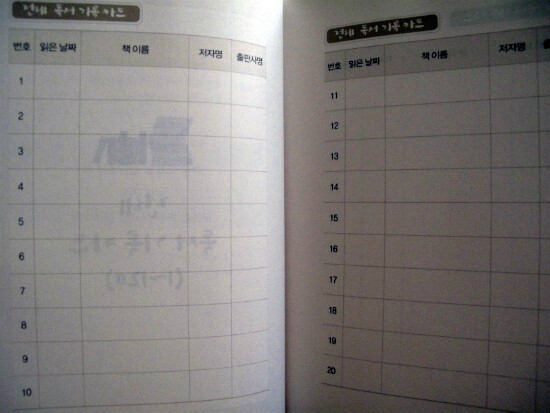 전체 독서 기록 카드
번호 읽은 날짜 책 이름 저자명 출판사명
1
2
3
4
5
6
7
8
9
10
전체 독서 기록 카드
번호 읽은 날짜 책 이름 저자명
11
12
13
14
15
16
17
18
19
20